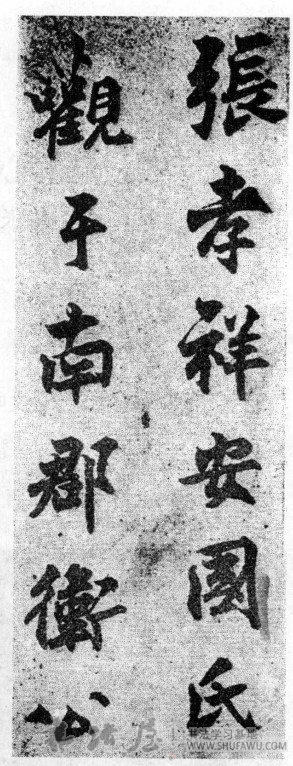 張孝祥安國氏
觀于南郡衛公
书法学习基地
WWW.SHUFAWU.COM